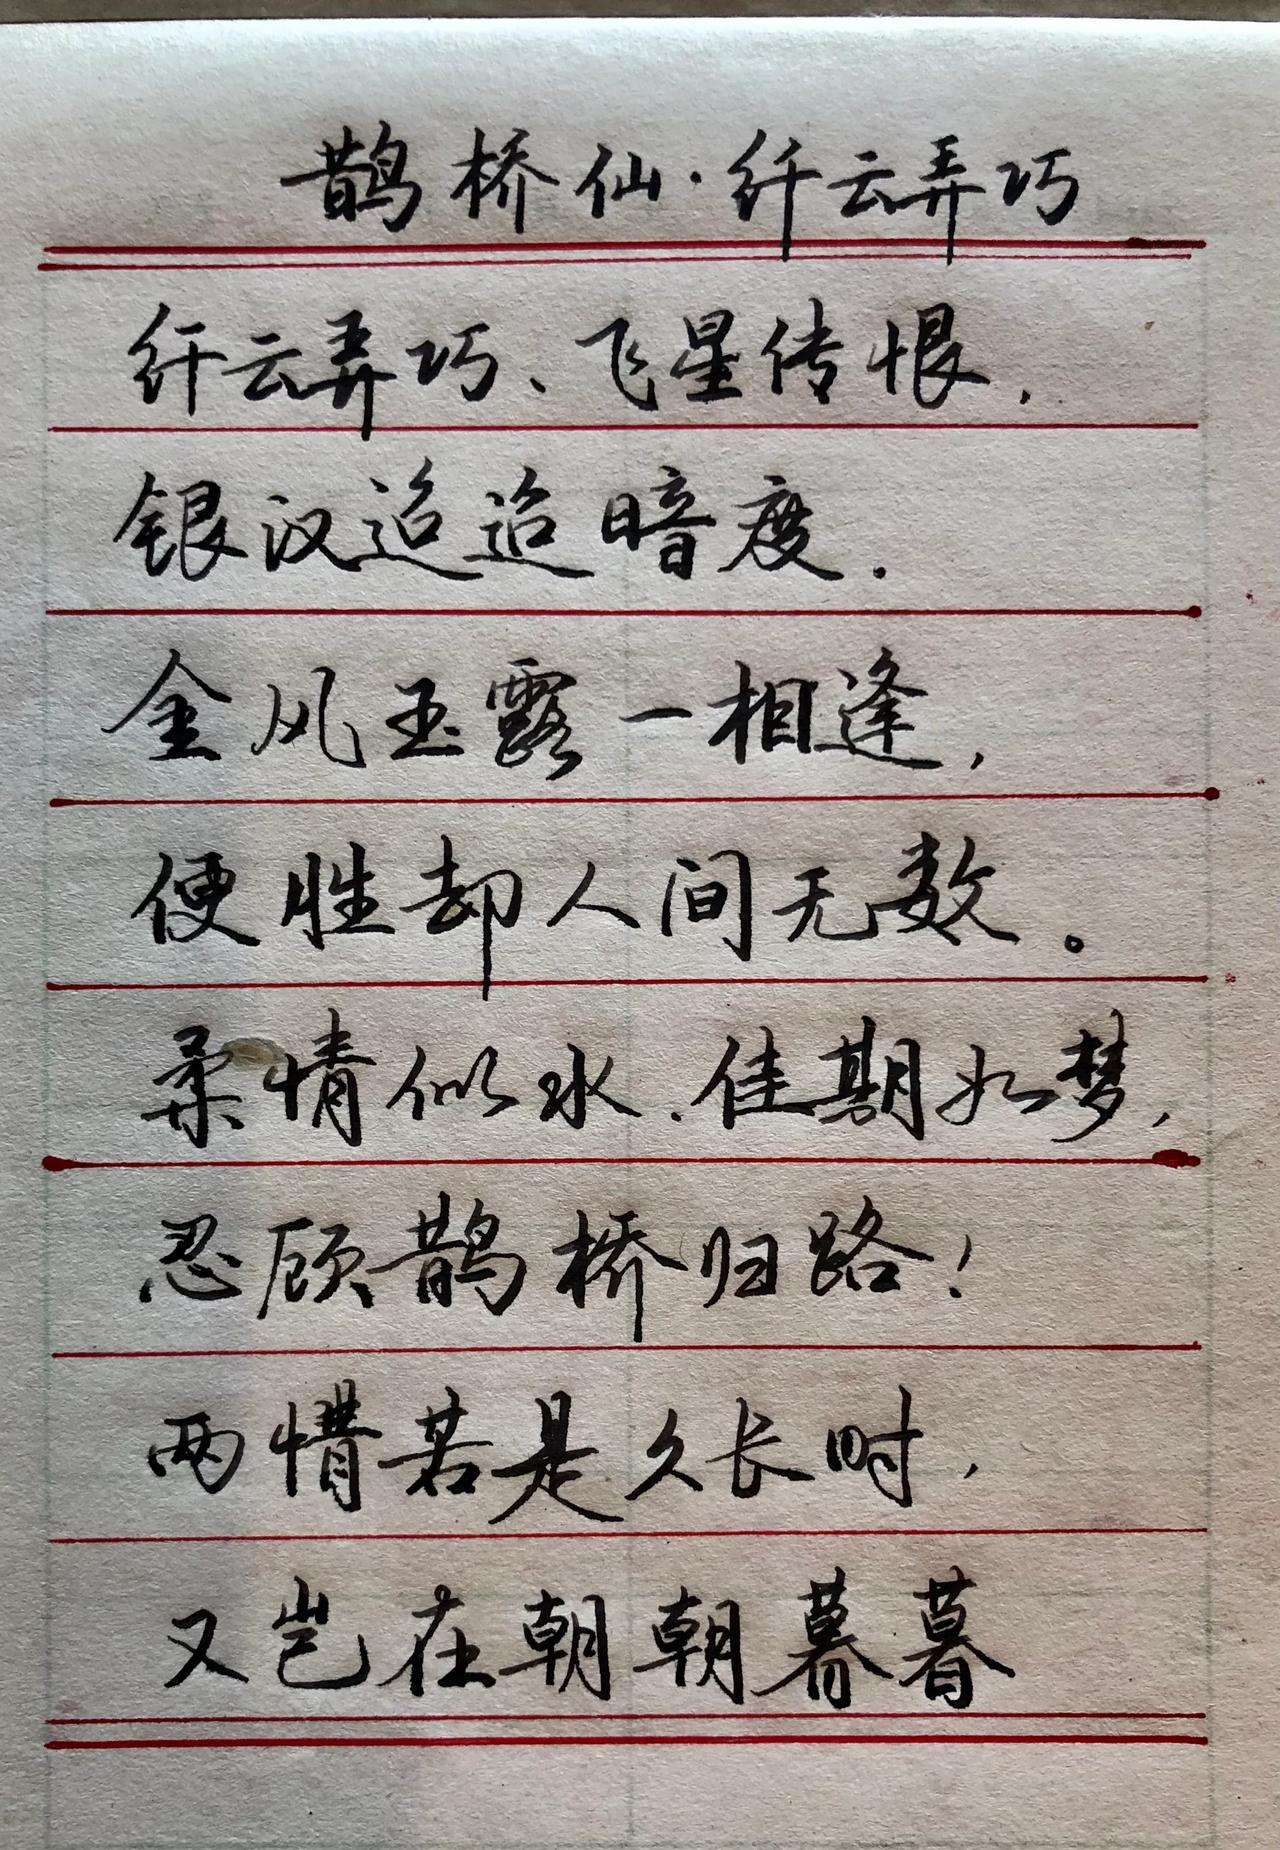 鹊桥仙·纤云弄巧
纤云弄巧、飞星传恨,
银汉迢迢暗度.
金风玉露一相逢,
便胜却人间无数。
柔情似水.佳期如梦,
忍顾鹊桥归路!
两情若是久长时,
又岂在朝朝暮暮